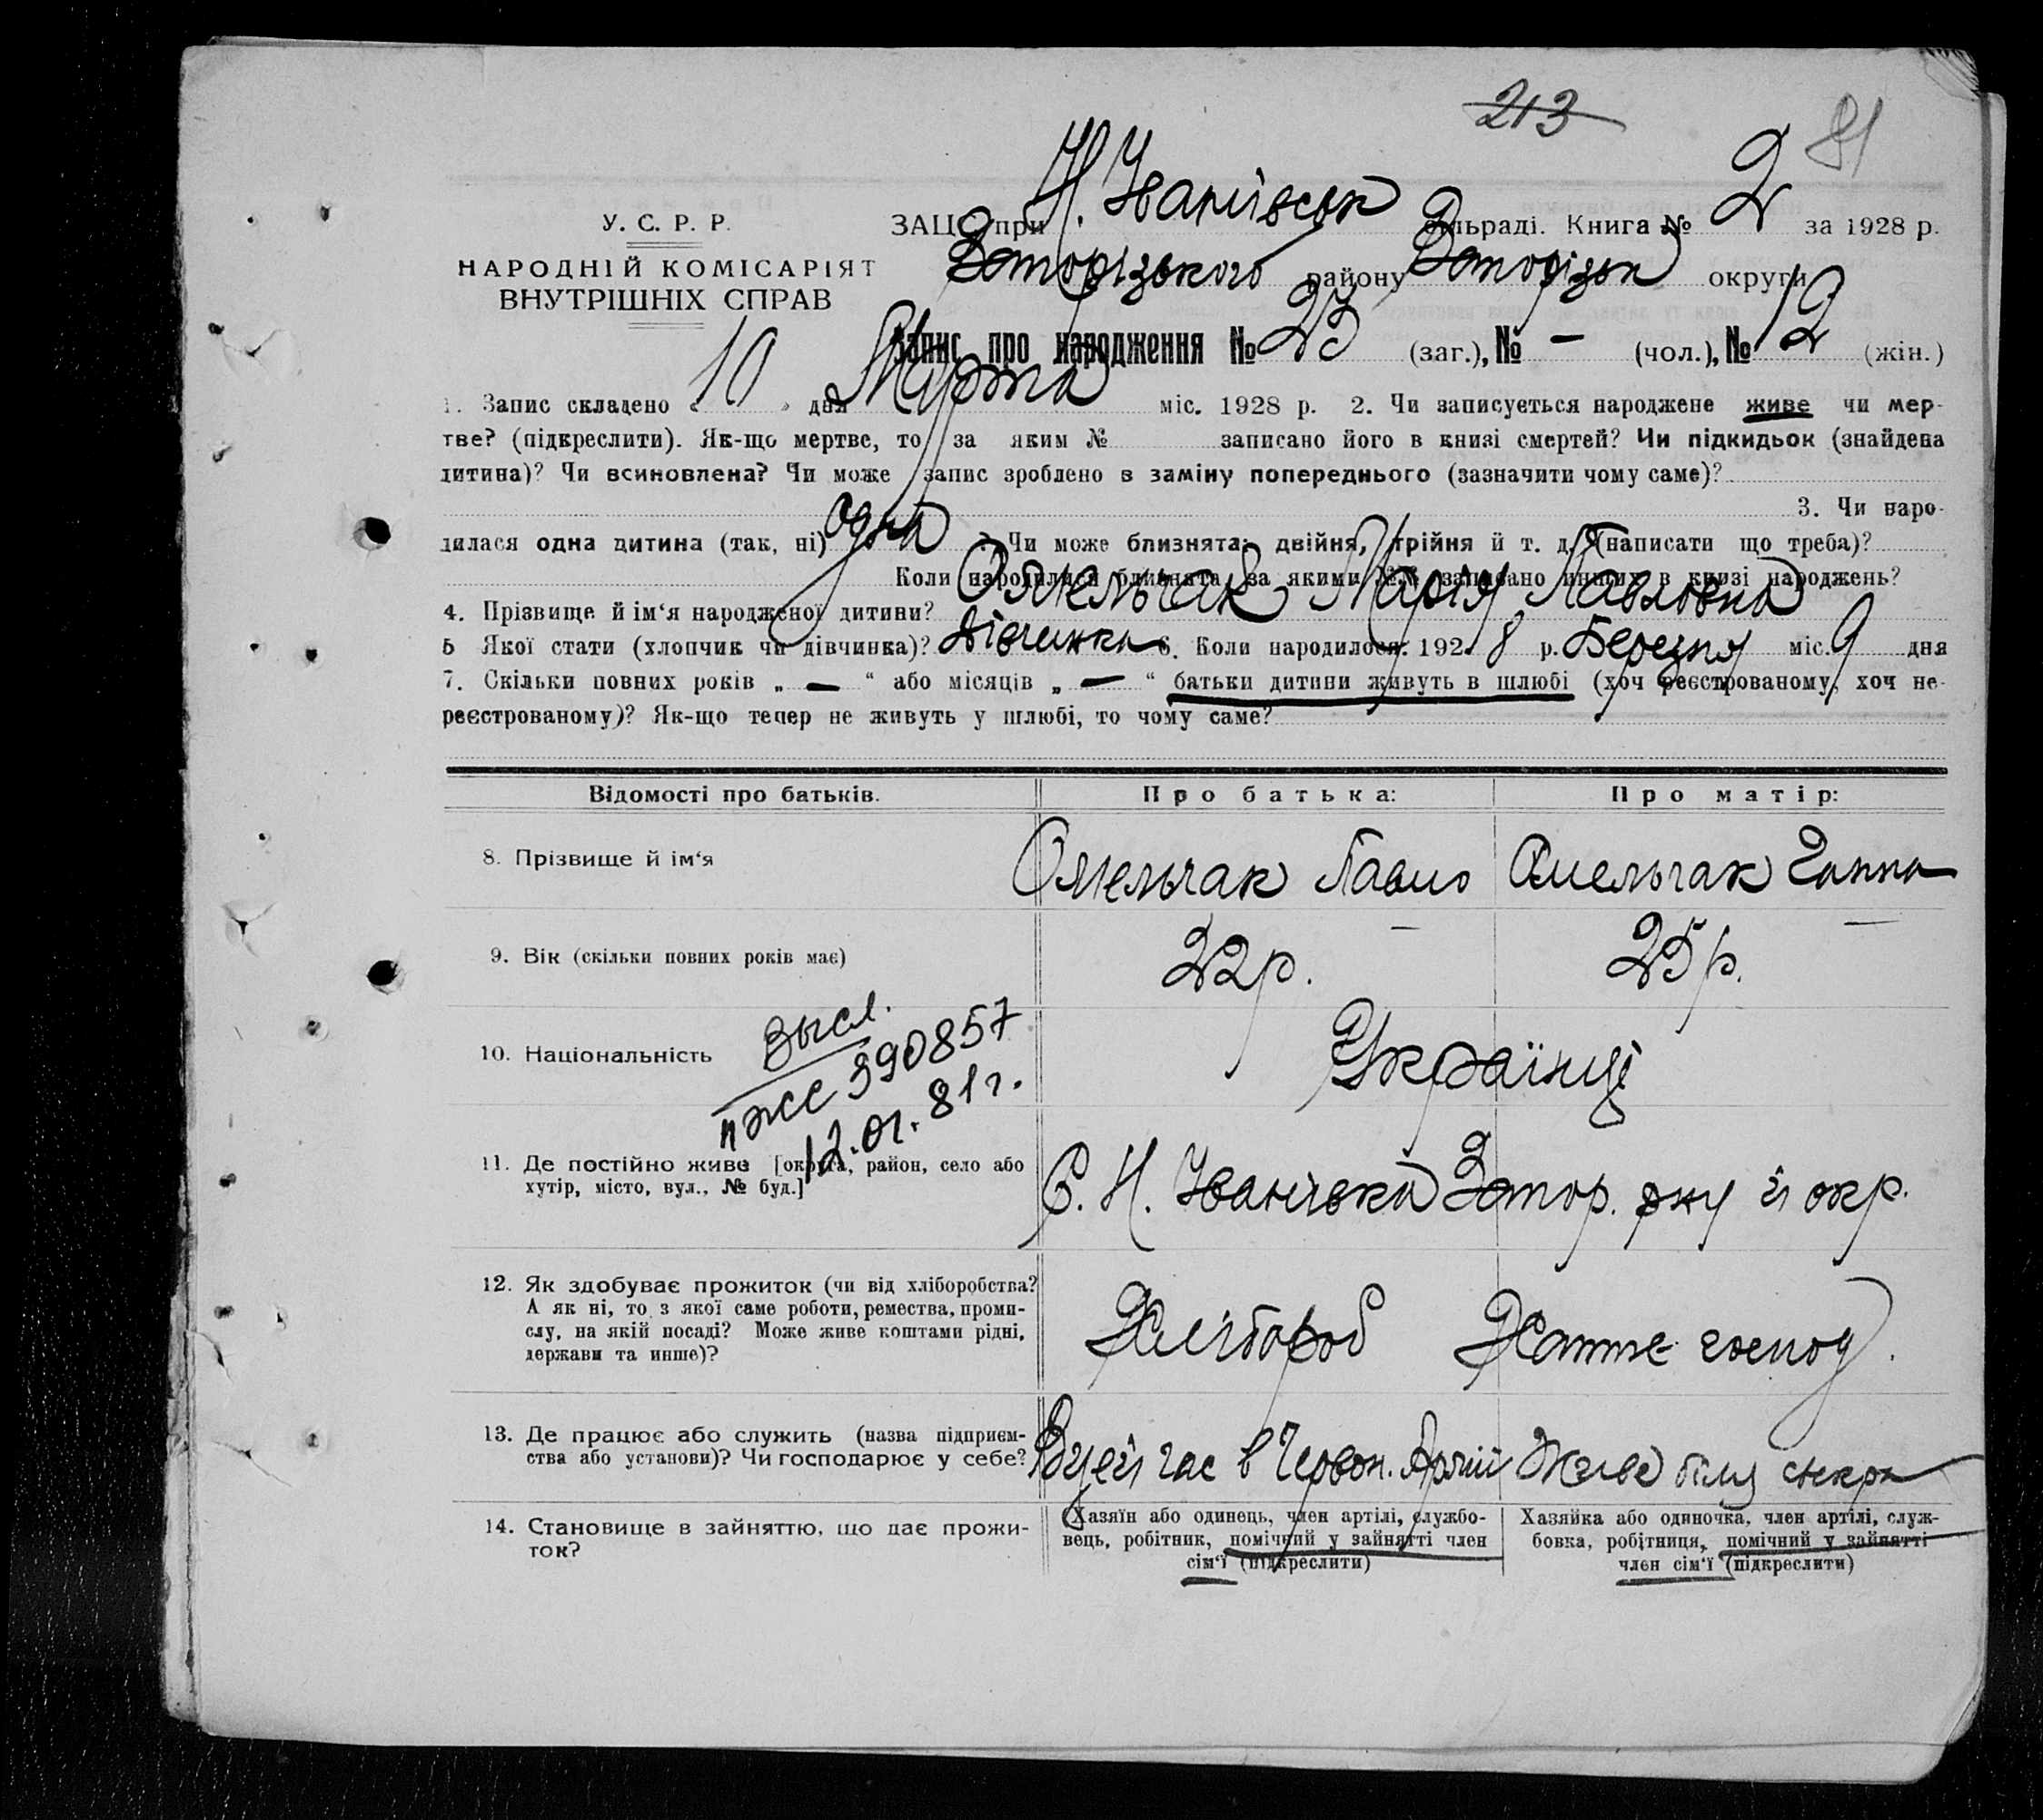 213
81
У. С. Р. Р.
НАРОДНІЙ КОМІСАРІЯТ
ВНУТРІШНІХ СПРАВ
ЗАЦС при Н. Іванівськ сільраді. Книга № 2 за 1928 р.
Запорізького району Запорізьк округи
Запис про народження № 23 (заг.), № – (чол.), № 12 (жін.)
1. Запис складено „ 10 " дня Марта міс. 1928 р. 2. Чи записується народжене живе чи мер-
тве? (підкреслити). Як-що мертве, то за яким № записано його в книзі смертей? Чи підкидьок (знайдена
дитина)? Чи всиновлена? Чи може запис зроблено в заміну попереднього (зазначити чому саме)?
3. Чи наро-
дилася одна дитина (так, ні) одна Чи може близнята: двійня, трійня й т. д. (написати що треба)?
Коли народилися близнята, за якими №№ записано инших в книзі народжень?
4. Прізвище й ім'я народженої дитини? Омельчак Марія Павловна
5 Якої стати (хлопчик чи дівчинка)? дівчинка 6. Коли народилося: 1928 р. Березня міс. 9 дня
7. Скільки повних років „ — " або місяців „ — " батьки дитини живуть в шлюбі (хоч реєстрованому, хоч не-
реєстрованому)? Як-що тепер не живуть у шлюбі, то чому саме?
Відомості про батьків. Про батька: Про матір:
8. Прізвище й ім'я Омельчак Павло Омельчак Ганна
9. Вік (скільки повних років має) 22 р. 25 р.
10. Національність Українці
высл.
п ЖС 390857
12.01.81 г.
11. Де постійно живе [округа, район, село або
хутір, місто, вул., № буд.]
С. Н. Іванівка Запор. р-ну й окр.
12. Як здобуває прожиток (чи від хліборобства?
А як ні, то з якої саме роботи, ремества, проми-
слу, на якій посаді? Може живе коштами рідні,
держави та инше)?
Хлібороб Хатнє господ.
13. Де працює або служить (назва підприєм-
ства або установи)? Чи господарює у себе?
В цей час в Червон. Армії Живе біля свекра
14. Становище в зайняттю, що дає прожи-
ток?
Хазяїн або одинець, член артілі, службо-
вець, робітник, помічний у зайнятті член
сім'ї (підкреслити)
Хазяйка або одиночка, член артілі, служ-
бовка, робітниця, помічний у зайнятті
член сім'ї (підкреслити)